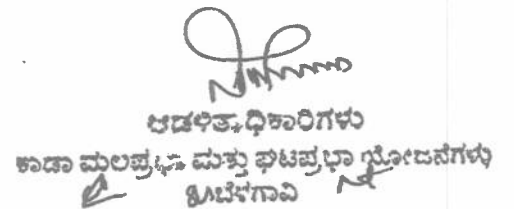 ಆಡಳಿತಾಧಿಕಾರಿಗಳು
ಕಾಡಾ ಮಲಪ್ರಭಾ ಮತ್ತು ಘಟಪ್ರಭಾ ಯೋಜನೆಗಳು
ಬೆಳಗಾವಿ